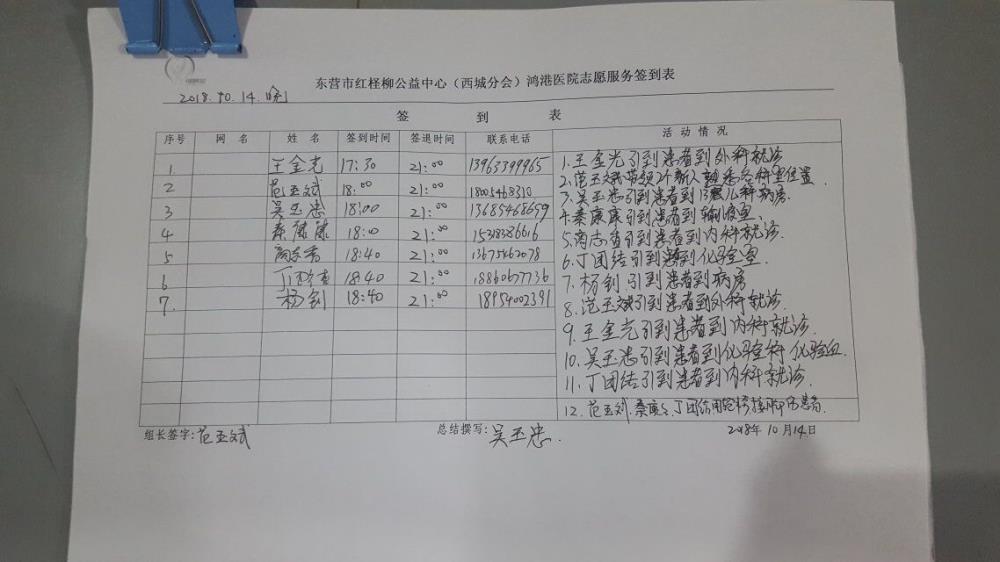 东营市红柽柳公益中心（西城分会）鸿港医院志愿服务签到表
2018.10.14.晚
签 到 表
序号 网 名 姓 名 签到时间 签退时间 联系电话 活动情况
1 王金光 17:30 21:00 13963399965
2 范玉斌 18:00 21:00 18005468310
3 吴玉忠 18:00 21:00 13685468659
4 秦康康 18:00 21:00 15318386616
5 18:40 21:00 13675462078
6 丁团结 18:40 21:00 18860677736
7. 杨钊 18:40 21:00 18954002391
1.王金光引到患者到外科就诊
2.范玉斌带领2个新人熟悉各科室位置
3.吴玉忠引到患者到13楼儿科病房
4.秦康康引到患者到输液室.
5.引到患者到内科就诊.
6.丁团结引到患者到化验室
7.杨钊引到患者到病房
8.范玉斌引到患者到外科就诊
9.王金光引到患者到内科就诊.
10.吴玉忠引到患者到化验科化验血.
11.丁团结引到患者到内科就诊.
12.范玉斌.秦康康.丁团结用轮椅接患者.
组长签字:范玉斌 总结撰写:吴玉忠. 2018年10月14日